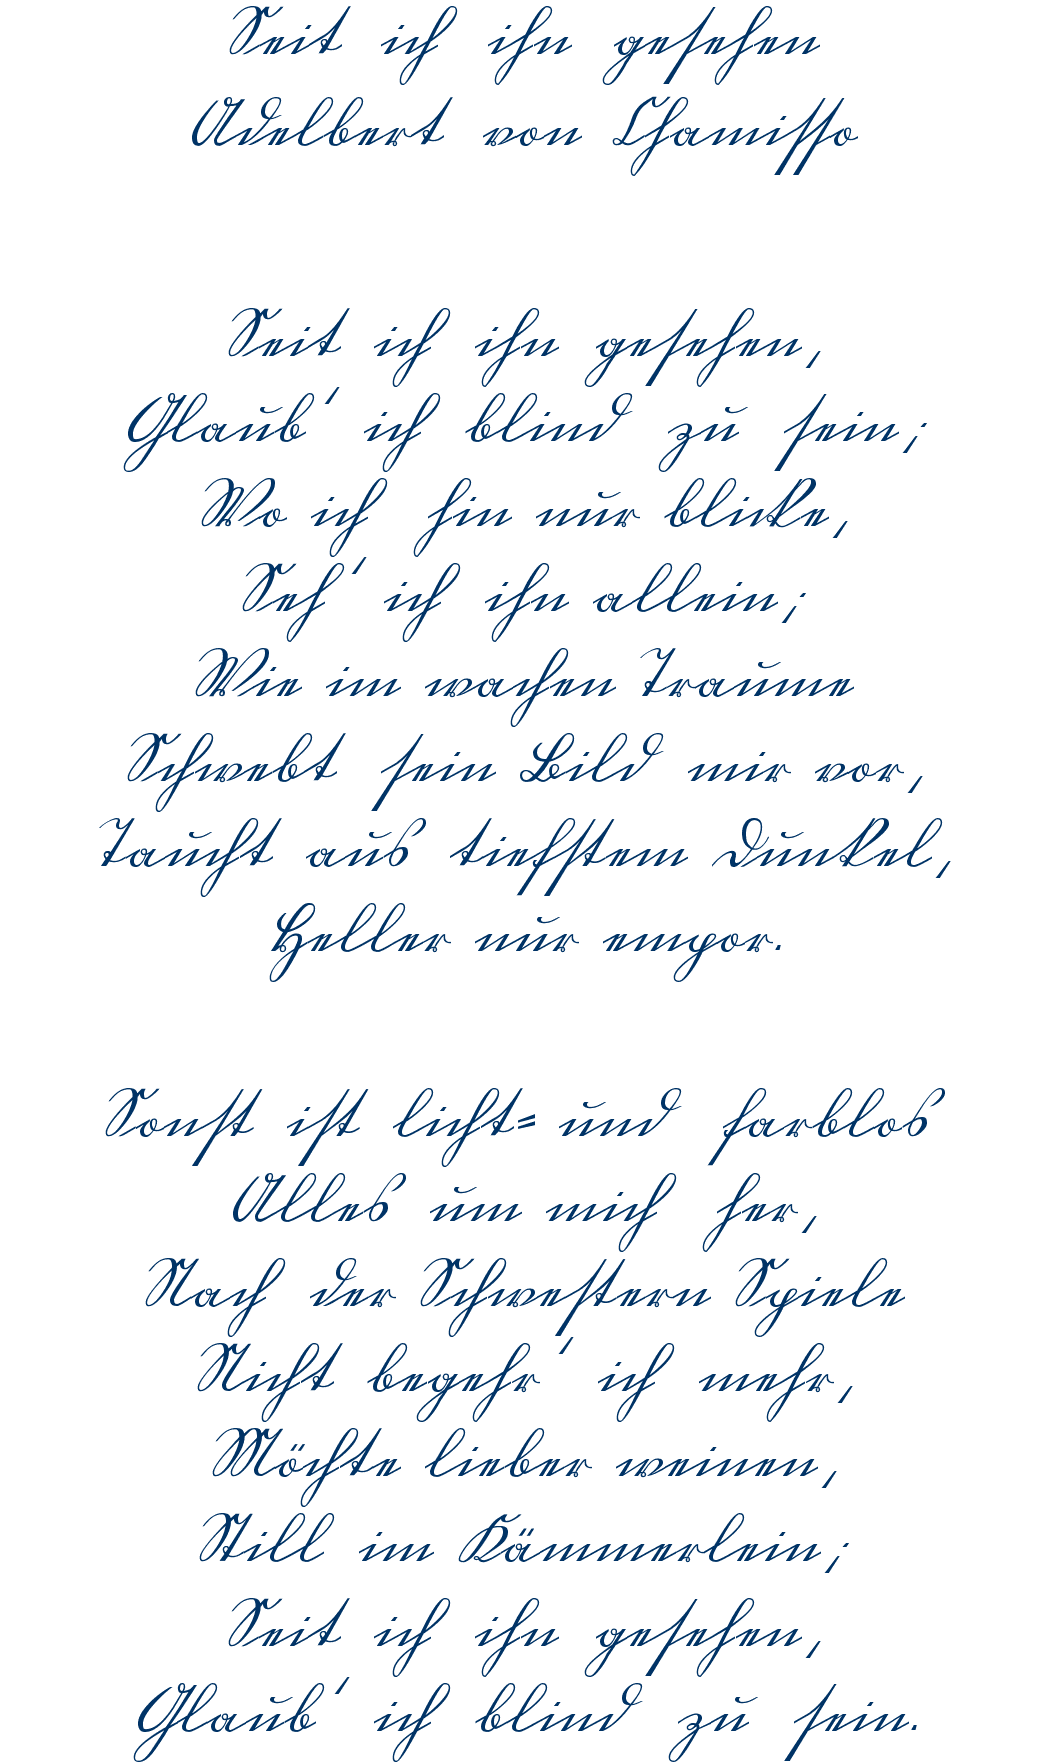 Seit ich ihn gesehen
Adelbert von Chamisso
Seit ich ihn gesehen,
Glaub' ich blind zu sein;
Wo ich hin nur blicke,
Seh' ich ihn allein;
Wie im wachen Traume
Schwebt sein Bild mir vor,
Taucht aus tiefstem Dunkel,
Heller nur empor.
Sonst ist licht- und farblos
Alles um mich her,
Nach der Schwestern Spiele
Nicht begehr' ich mehr,
Möchte lieber weinen,
Still im Kämmerlein;
Seit ich ihn gesehen,
Glaub' ich blind zu sein.